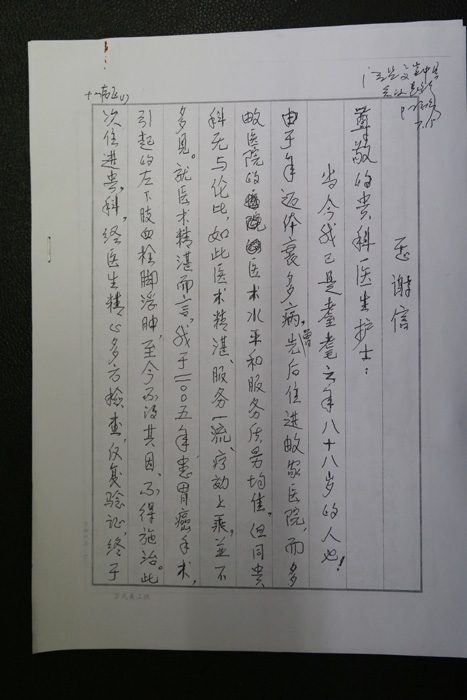 感谢信
尊敬的贵科医生护士：
当今我已是耋耄之年八十八岁的人也！
由于年迈体衰多病，曾先后住进数家医院，而多
数医院的医术水平和服务质量均佳。但同贵
科无与伦比，如此医术精湛、服务一流、疗効上乘，並不
多见。就医术精湛而言，我于二〇〇五年患胃癌手术，
引起的左下肢血栓脚浮肿，至今不得其因、不得施治。此
次住进贵科，经医生精心多方检查，反复验证，终于